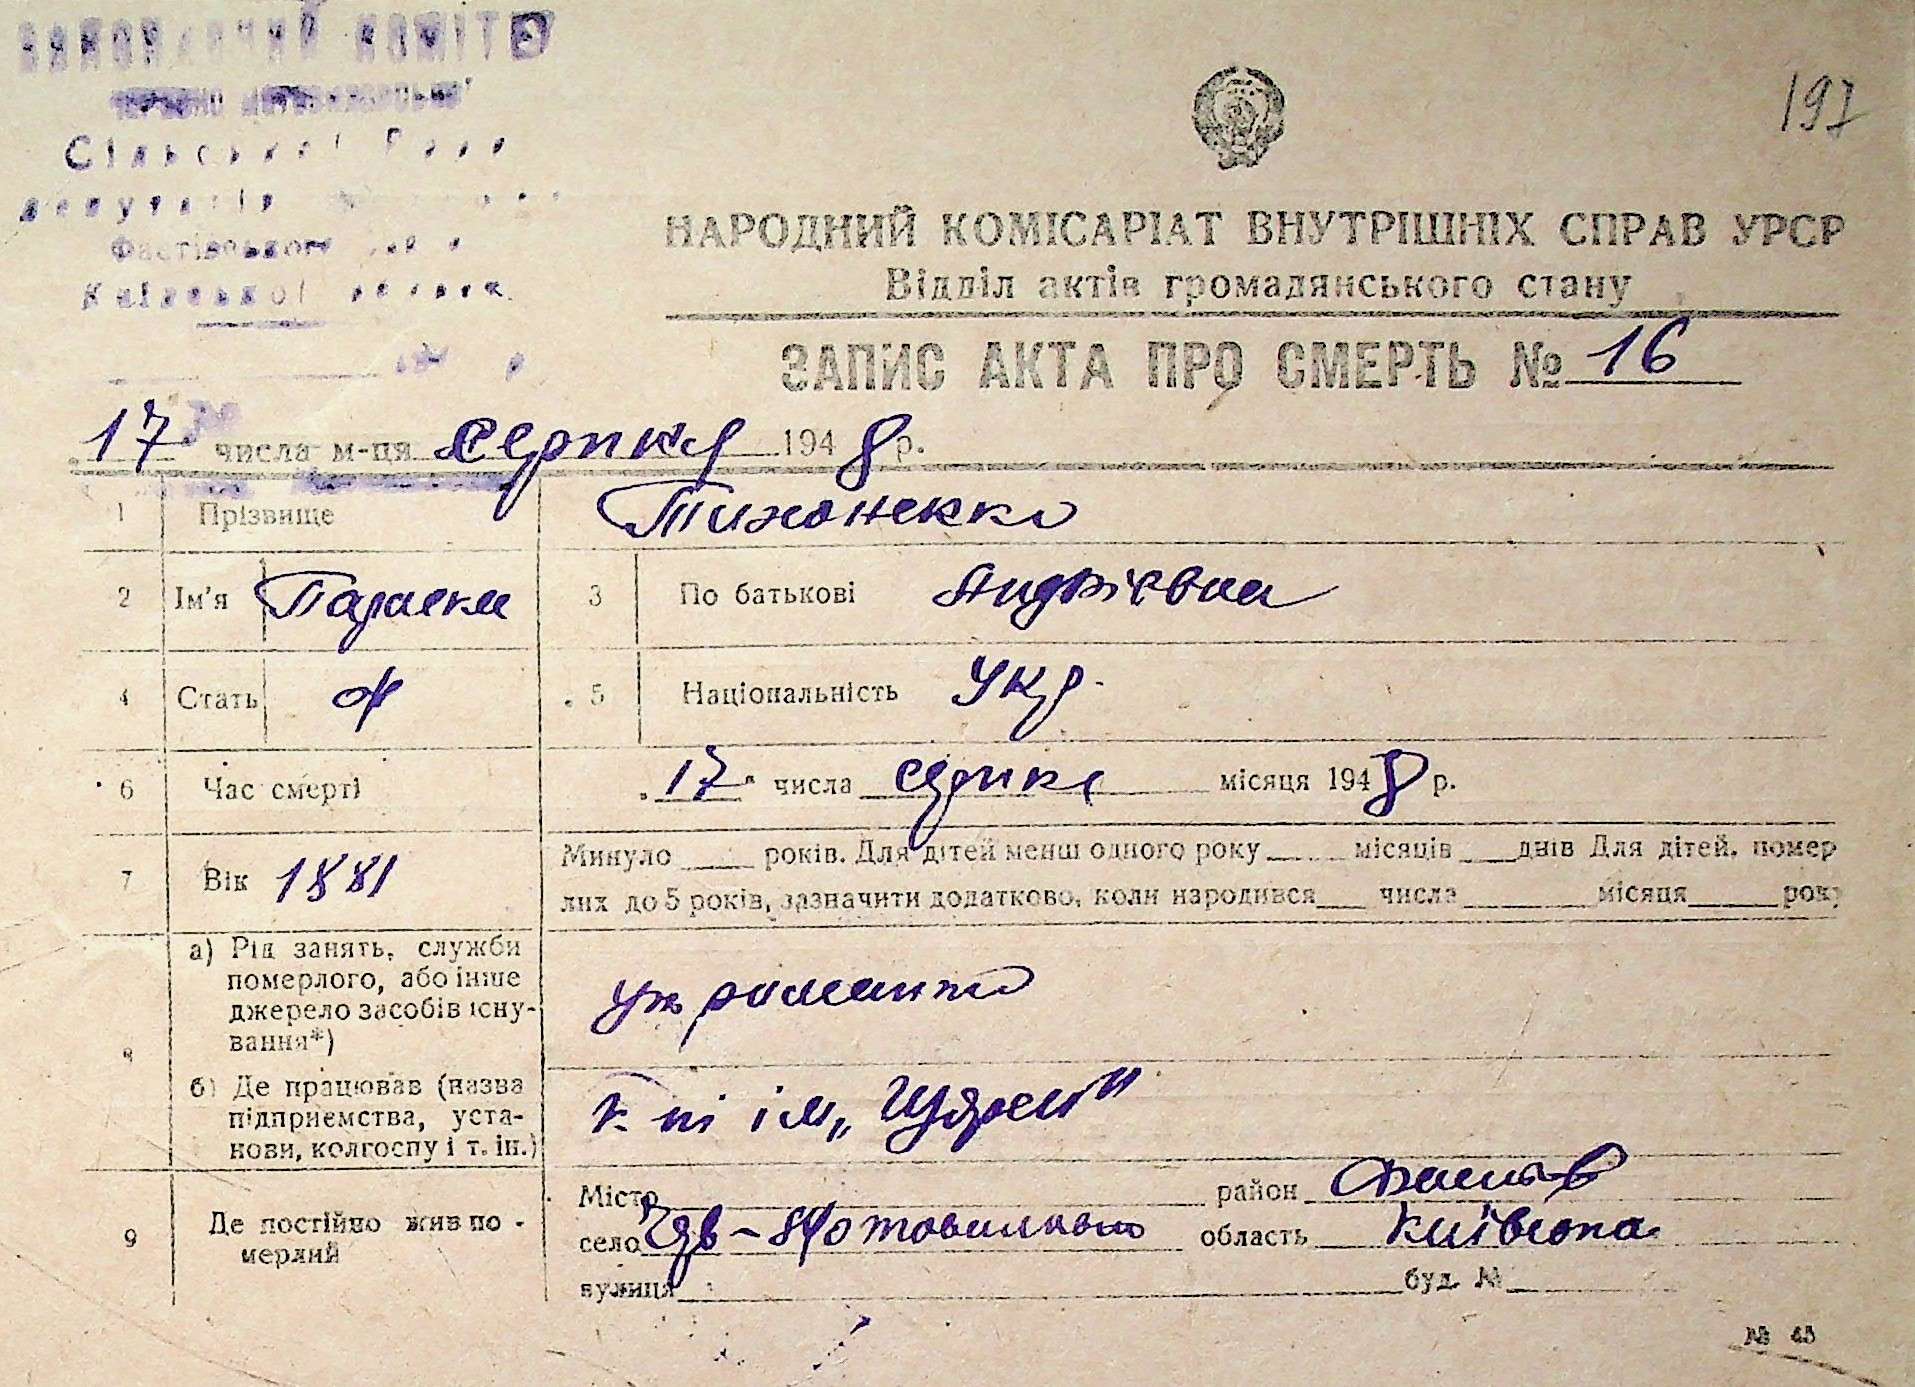 ВИКОНАВЧИЙ КОМІТЕТ
Сільської Ради
депутатів
Фастівського р-ну
Київської
197
НАРОДНИЙ КОМІСАРІАТ ВНУТРІШНІХ СПРАВ УРСР
Відділ актів громадянського стану
ЗАПИС АКТА ПРО СМЕРТЬ № 16
17 числа м-ця серпня 1948 р.
1 Прізвище Тихоненко
2 Ім'я Параска 3 По батькові Андріївна
4 Стать ж 5 Національність Укр.
6 Час смерті „17" числа серпня місяця 1948 р.
7 Вік 1881 Минуло ___ років. Для дітей менш одного року ___ місяців ___ днів Для дітей, помер
лих до 5 років, зазначити додатково, коли народився ___ числа ___ місяця ___ року
8 а) Рід занять, служби
померлого, або інше
джерело засобів існу-
вання*)
утриманка
б) Де працював (назва
підприємства, уста-
нови, колгоспу і т. ін.)
к-пі ім „Щорса"
9 Де постійно жив по-
мерлий
Місто ___ район Фастів
село ___ область Київська
вулиця ___ буд. № ___
№ 45